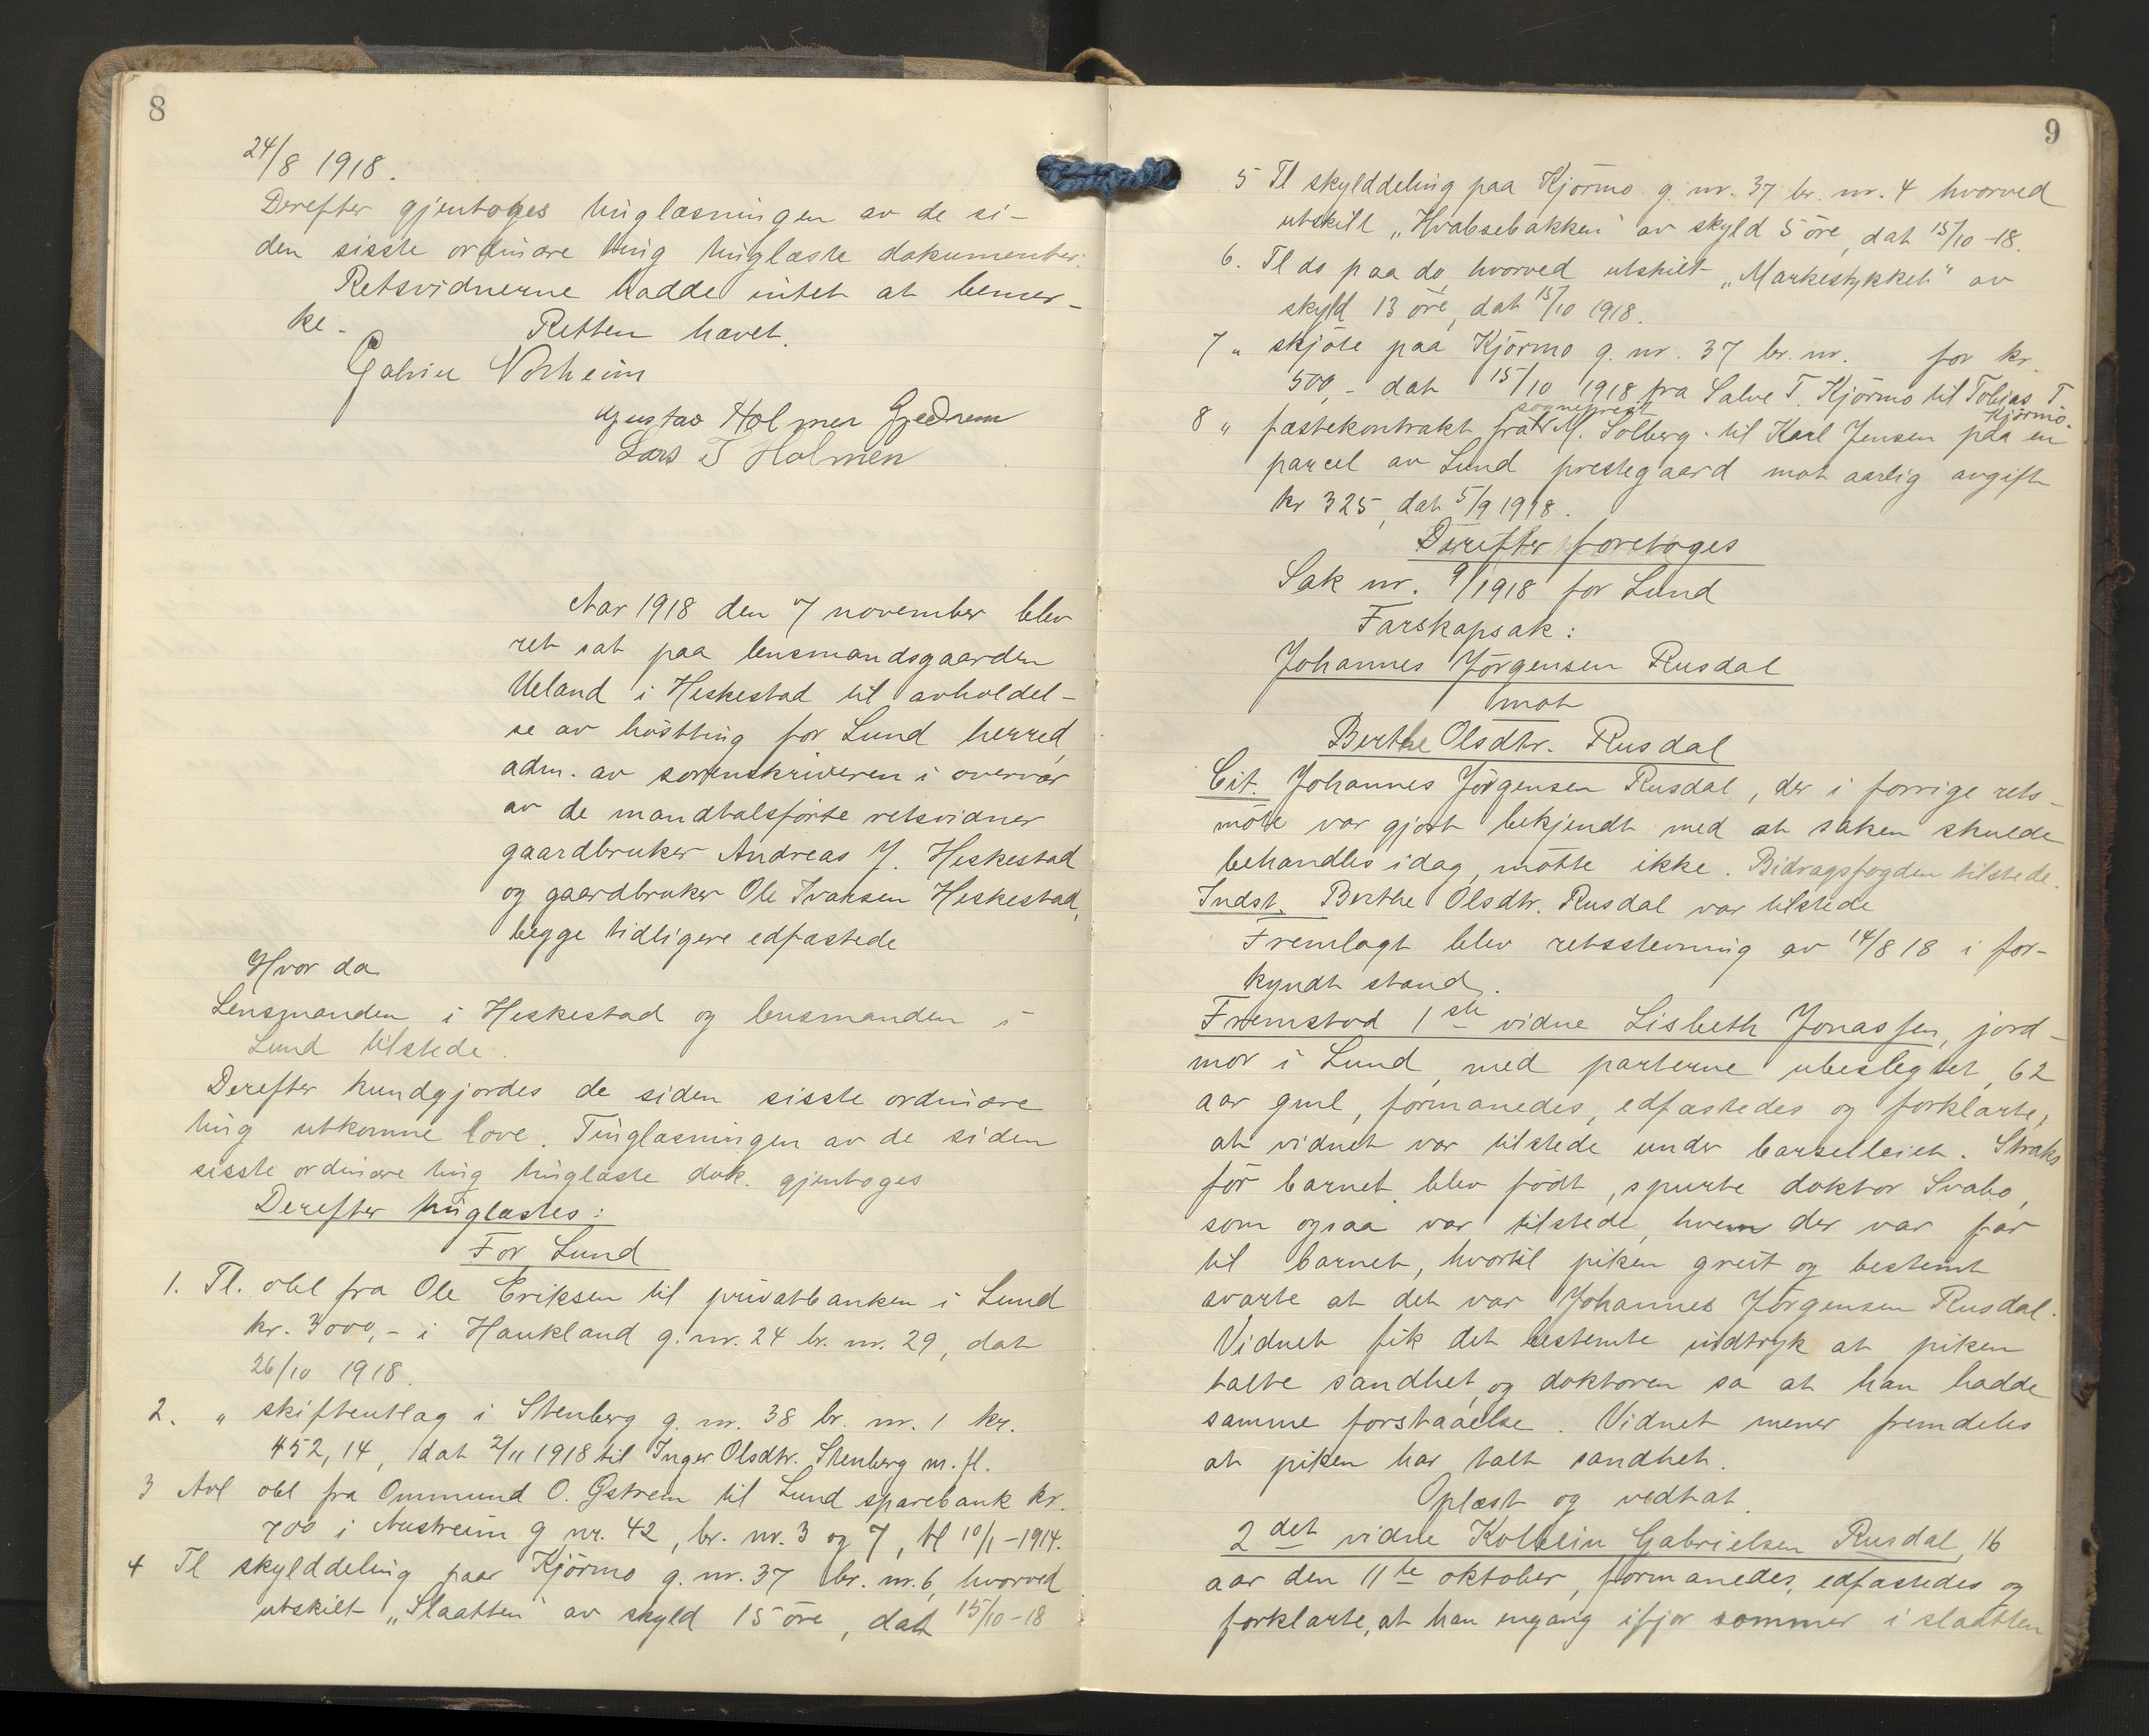 8
24/8 1918.
Derefter gjentoges tinglæsningen av de si-
den sisste ordinære ting tinglæste dokumenter.
Retsvidnerne hadde intet at bemer-
ke. Retten hævet.
Gustav Holmen Gjedrem
Lars T Holmen
Aar 1918 den 7 november blev
ret sat paa lensmandsgaarden
Ueland i Heskestad til avholdel-
se av høstting for Lund herred,
adm. av sorenskriveren i overvær
av de mandtalsførte retsvidner
gaardbruker Andreas J. Heskestad
og gaardbruker Ole Ivarsen Heskestad,
begge tidligere edfæstede
Hvor da
Lensmanden i Heskestad og lensmanden i
Lund tilstede.
Derefter kundgjordes de siden sisste ordinære
ting utkomne love. Tinglæsningen av de siden
sisste ordinære ting tinglæste dok. gjentoges
Derefter tinglæstes:
For Lund
1. Tl. obl fra Ole Eriksen til privatbanken i Lund
kr. 3000,- i Haukland g. nr. 24 br. nr. 29, dat
26/10 1918.
2. „ skifteutlag i Stenberg g. nr. 38 br. nr. 1 kr.
452,14, dat 2/11 1918 til Inger Olsdtr. Stenberg m. fl.
3 Avl obl fra Ommund O. Gstrem til Lund sparebank kr.
700 i Austreim g nr. 42, br. nr. 3 og 7, tl 10/1-1914.
4 Tl skylddeling paa Kjörmo g. nr. 37 br. nr. 6, hvorved
utskilt „Slaatten" av skyld 15 öre, dat 15/10-18
9
5 Tl skylddeling paa Kjörmo g. nr. 37 br. nr. 4 hvorved
utskilt „Hvabsebakken" av skyld 5 öre, dat 15/10-18.
6. Tl do paa do, hvorved utskilt „Markestykket" av
skyld 13 öre, dat 15/10 1918.
7 „ skjöte paa Kjörmo g. nr. 37 br. nr. for kr.
500,- dat 15/10 1918 fra Salve T. Kjörmo til Tobias T.
Kjörmo.
8 „ fæstekontrakt fra sogneprest M. Solberg til Karl Jensen paa en
parcel av Lund prestegaard mot aarlig avgift
kr 325, dat 5/9 1918.
Derefter foretoges
Sak nr. 9/1918 for Lund
Farskapsak:
Johannes Jörgensen Rusdal
mot
Berthe Olsdtr. Rusdal
Cit. Johannes Jörgensen Rusdal, der i forrige rets-
möte var gjort bekjendt med at saken skulde
behandles idag, mötte ikke. Bidragsfogden tilstede.
Indst. Berthe Olsdtr. Rusdal var tilstede
Fremlagt blev retsstevning av 14/8 18 i for-
kyndt stand.
Fremstod 1ste vidne Lisbeth Jonassen, jord-
mor i Lund, med parterne ubeslegtet, 62
aar gml, formanedes, edfæstedes og forklarte,
at vidnet var tilstede under barselleiet. Straks
för barnet blev födt, spurte doktor Svabo,
som ogsaa var tilstede, hvem der var far
til barnet, hvortil piken greit og bestemt
svarte at det var Johannes Jörgensen Rusdal.
Vidnet fik det bestemte indtryk at piken
talte sandhet, og doktoren sa at han hadde
samme forstaaelse. Vidnet mener fremdeles
at piken har talt sandhet.
Oplæst og vedtat.
2det vidne Kolbein Gabrielsen Rusdal, 16
aar den 11te oktober, formanedes, edfæstedes og
forklarte, at han engang ifjor sommer i slaatten